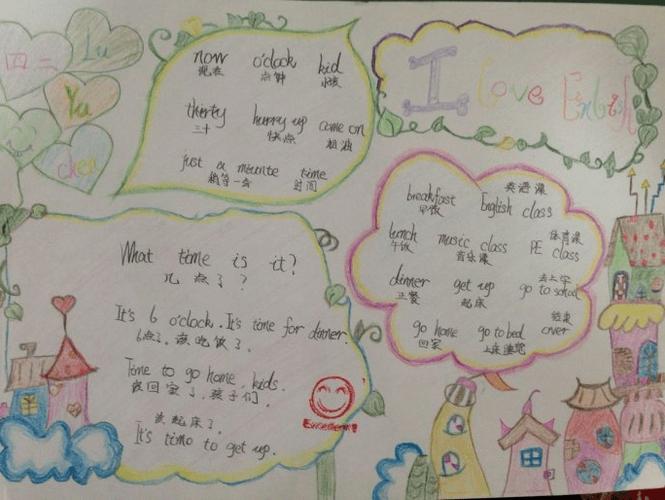 四二
Lu
Yu
chen
now o'clock kid
现在 点钟 小孩
thirty hurry up come on
三十 快点
just a miunte time
稍等一会 时间
I Love English
breakfast English class
早饭 英语课
lunch music class PE class
午饭 音乐课 体育课
dinner get up go to school
正餐 起床 去上学
go home go to bed over
回家 上床睡觉 结束
What time is it?
几点了?
It's 6 o'clock. It's time for dinner.
6点了,该吃饭了.
Time to go home, kids.
该回家了,孩子们.
该起床了.
It's time to get up.